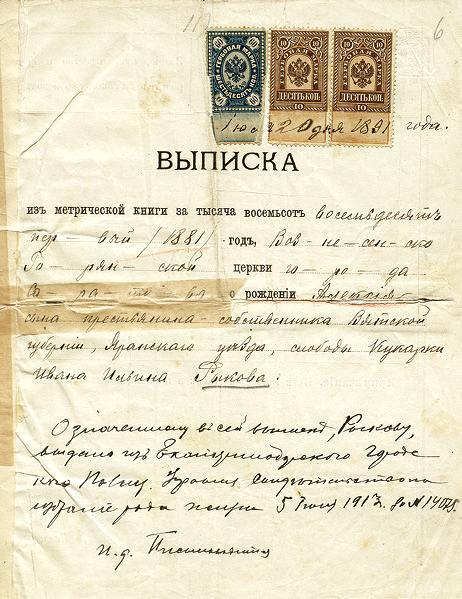 11
6
60 ГЕРБОВАЯ МАРКА 60
ШЕСТЬДЕСЯТЪ КОП.
60 60
10 10 10 10
ДЕСЯТЬ КОП. ДЕСЯТЬ КОП.
10 10
20 дня 1891 года.
ВЫПИСКА
изъ метрической книги за тысяча восемьсотъ восемьдесятъ
пер — вый /1881/ годъ, Воз — не — сен — ско
Го — рян — ской церкви го — ро — да
Са — ра — то — ва о рожденіи Алексѣя
сына крестьянина-собственника Вятской
губерніи, Яранскаго уѣзда, слободы Кукарки
Ивана Ильина Рыкова.
Означенному въ сей выписи, Рыкову,
выдано изъ Екатеринодарского Городс
кого Полиц. Управл. свидѣтельство на
5 1917. за № 14075.
И. д.